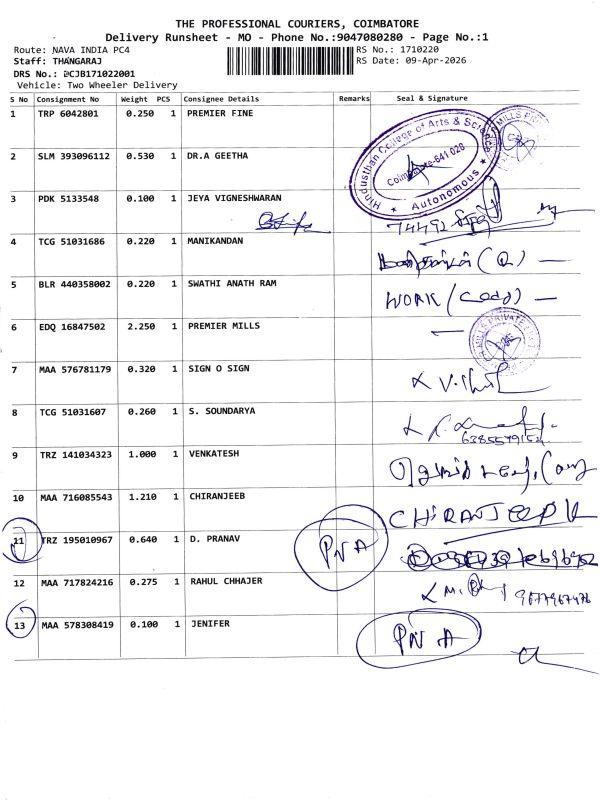 THE PROFESSIONAL COURIERS, COIMBATORE
Delivery Runsheet - MO - Phone No.:9047080280 - Page No.:1
Route: NAVA INDIA PC4 RS No.: 1710220
Staff: THANGARAJ RS Date: 09-Apr-2026
DRS No.: @CJB171022001
Vehicle: Two Wheeler Delivery
S No Consignment No Weight PCS Consignee Details Remarks Seal & Signature
1 TRP 6042801 0.250 1 PREMIER FINE
Hindusthan College of Arts & Science
Coimbatore-641 028
* Autonomous *
2 SLM 393096112 0.530 1 DR.A GEETHA
3 PDK 5133548 0.100 1 JEYA VIGNESHWARAN
74492
4 TCG 51031686 0.220 1 MANIKANDAN
5 BLR 440358002 0.220 1 SWATHI ANATH RAM WORK
6 EDQ 16847502 2.250 1 PREMIER MILLS
MILLS PRIVATE
7 MAA 576781179 0.320 1 SIGN O SIGN
8 TCG 51031607 0.260 1 S. SOUNDARYA
9 TRZ 141034323 1.000 1 VENKATESH
10 MAA 716085543 1.210 1 CHIRANJEEB CHIRANJEEP
11 TRZ 195010967 0.640 1 D. PRANAV PNA
12 MAA 717824216 0.275 1 RAHUL CHHAJER 9677967476
13 MAA 578308419 0.100 1 JENIFER PNA